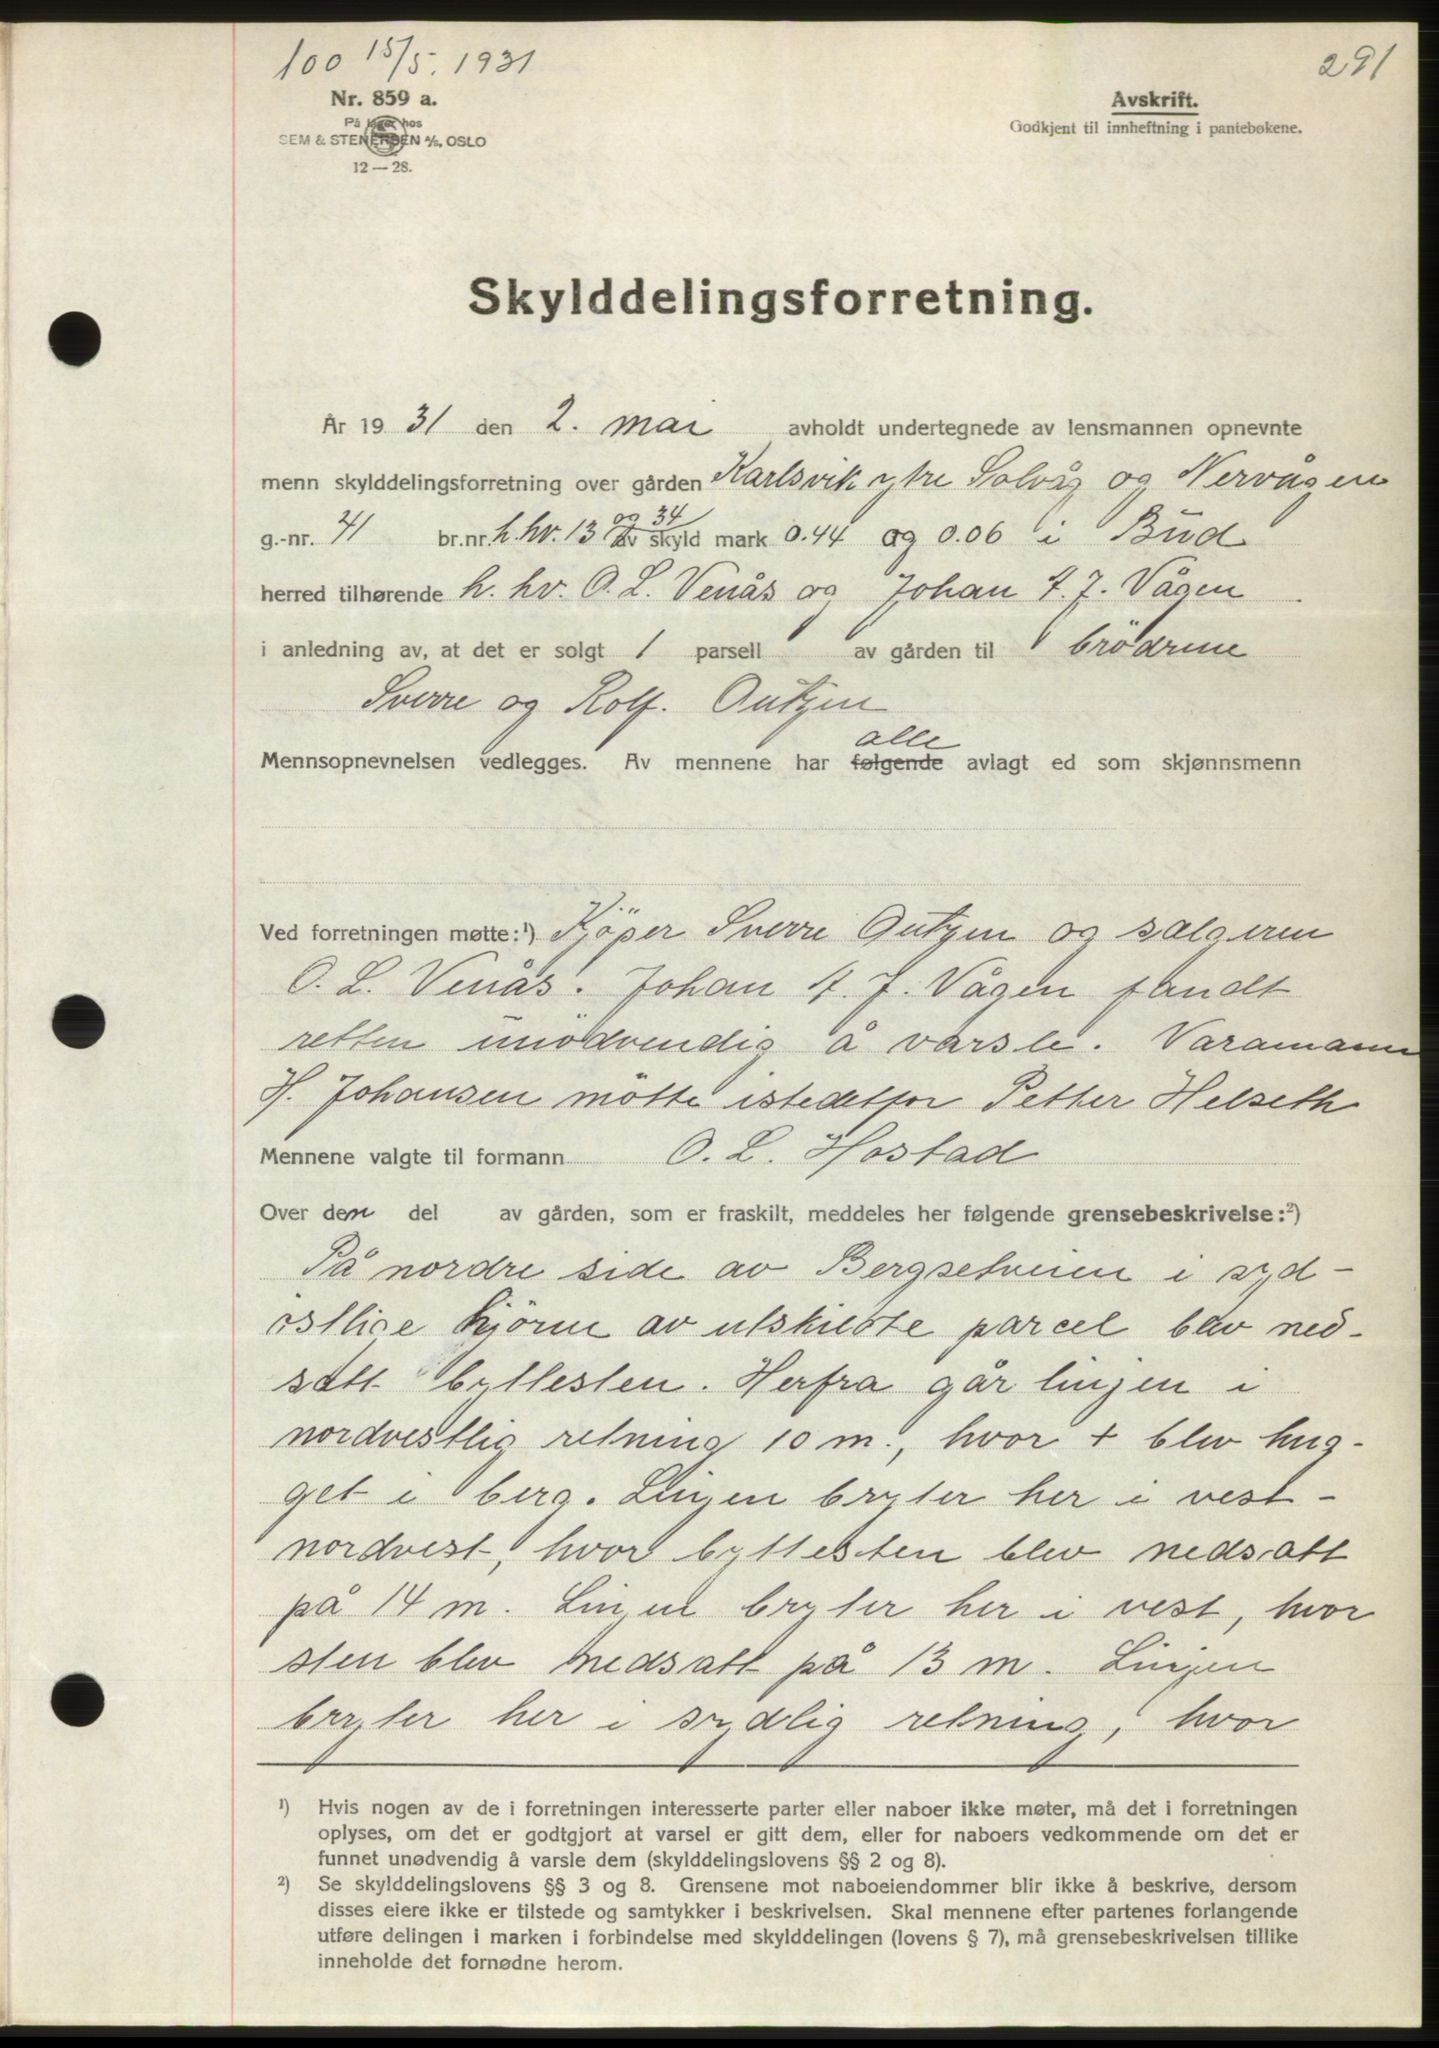 100 15/5. 1931
291
Nr. 859 a.
På lager hos
SEM & STENERSEN A/S, OSLO
12 — 28.
Avskrift.
Godkjent til innheftning i pantebøkene.
Skylddelingsforretning.
År 1931 den 2. mai avholdt undertegnede av lensmannen opnevnte
menn skylddelingsforretning over gården Karlsvik ytre Solvåg og Nervågen
og 34
g.-nr. 41 br.nr. h.hv. 13 av skyld mark 0.44 og 0.06 i Bud
herred tilhørende h. hv. O. L. Venås og Johan A. J. Vågen
i anledning av, at det er solgt 1 parsell av gården til brödrene
Sverre og Rolf. Outzen
alle
Mennsopnevnelsen vedlegges. Av mennene har følgende avlagt ed som skjønnsmenn
Ved forretningen møtte:¹) Kjöper Sverre Outzen og salgeren
O. L. Venås. Johan A. J. Vågen fandt
retten unödvendig å varsle. Varamann
H. Johansen mötte istedetfor Petter Helseth
Mennene valgte til formann O. L. Hostad
Over den del av gården, som er fraskilt, meddeles her følgende grensebeskrivelse:²)
På nordre side av Bergsetveien i syd-
östlige hjörne av utskildte parcel blev ned-
satt byttesten. Herfra går linjen i
nordvestlig retning 10 m., hvor + blev hug-
get i berg. Linjen bryter her i vest-
nordvest, hvor byttesten blev nedsatt
på 14 m. Linjen bryter her i vest, hvor
sten blev nedsatt på 13 m. Linjen
bryter her i sydlig retning, hvor
¹) Hvis nogen av de i forretningen interesserte parter eller naboer ikke møter, må det i forretningen
oplyses, om det er godtgjort at varsel er gitt dem, eller for naboers vedkommende om det er
funnet unødvendig å varsle dem (skylddelingslovens §§ 2 og 8).
²) Se skylddelingslovens §§ 3 og 8. Grensene mot naboeiendommer blir ikke å beskrive, dersom
disses eiere ikke er tilstede og samtykker i beskrivelsen. Skal mennene efter partenes forlangende
utføre delingen i marken i forbindelse med skylddelingen (lovens § 7), må grensebeskrivelsen tillike
inneholde det fornødne herom.